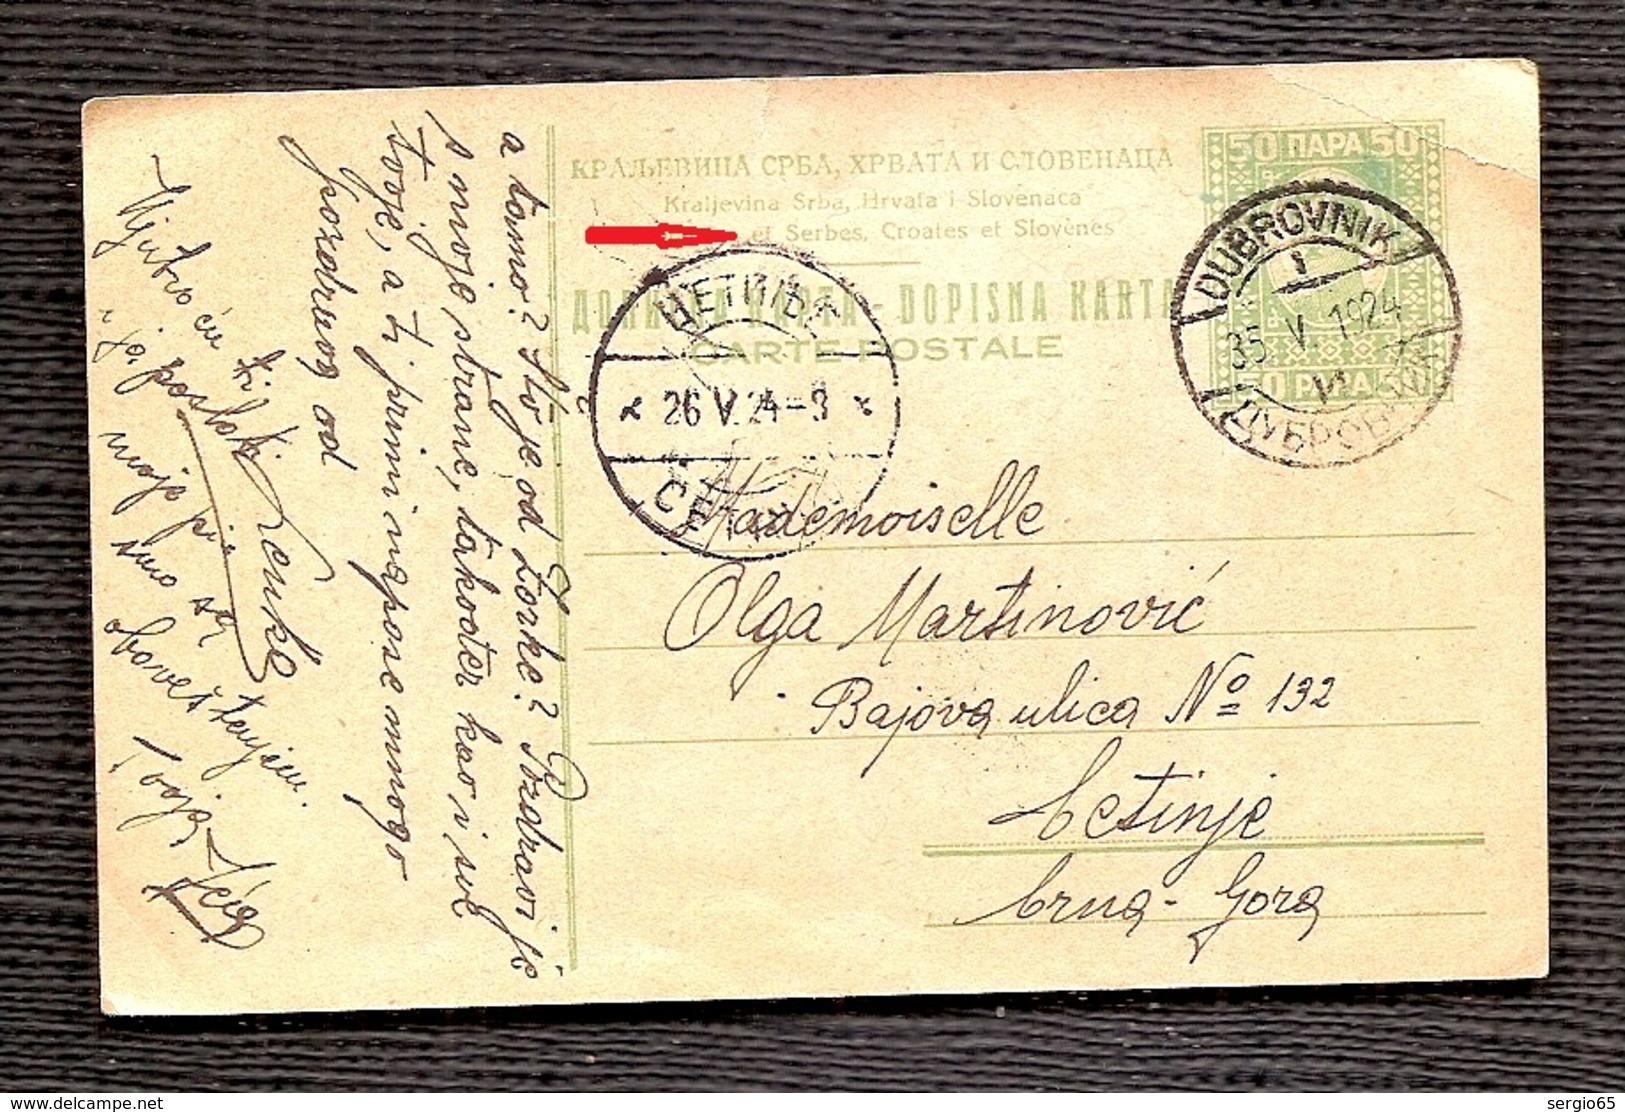 50 ПАРА 50
КРАЉЕВИНА СРБА, ХРВАТА И СЛОВЕНАЦА
Kraljevina Srba, Hrvata i Slovenaca
et Serbes, Croates et Slovènes
ДОПИСНА КАРТА - DOPISNA KARTA
CARTE POSTALE
50 PARA 50
DUBROVNIK
1
V. 1924
VI
ДУБРОВНИК
ЦЕТИЊЕ
26 V. 24-
CETI
Mademoiselle
Olga Martinović
Bajova ulica No 132
Cetinje
Crna-Gora
a tamo? Što je od Zorke? Pozdravi je
s moje strane, također kao i sve
tvoje, a ti primi napose mnogo
pozdrava od
Ujutro ću ti
i ja poslati
moje
Tvoja
delcampe.net
sergio65